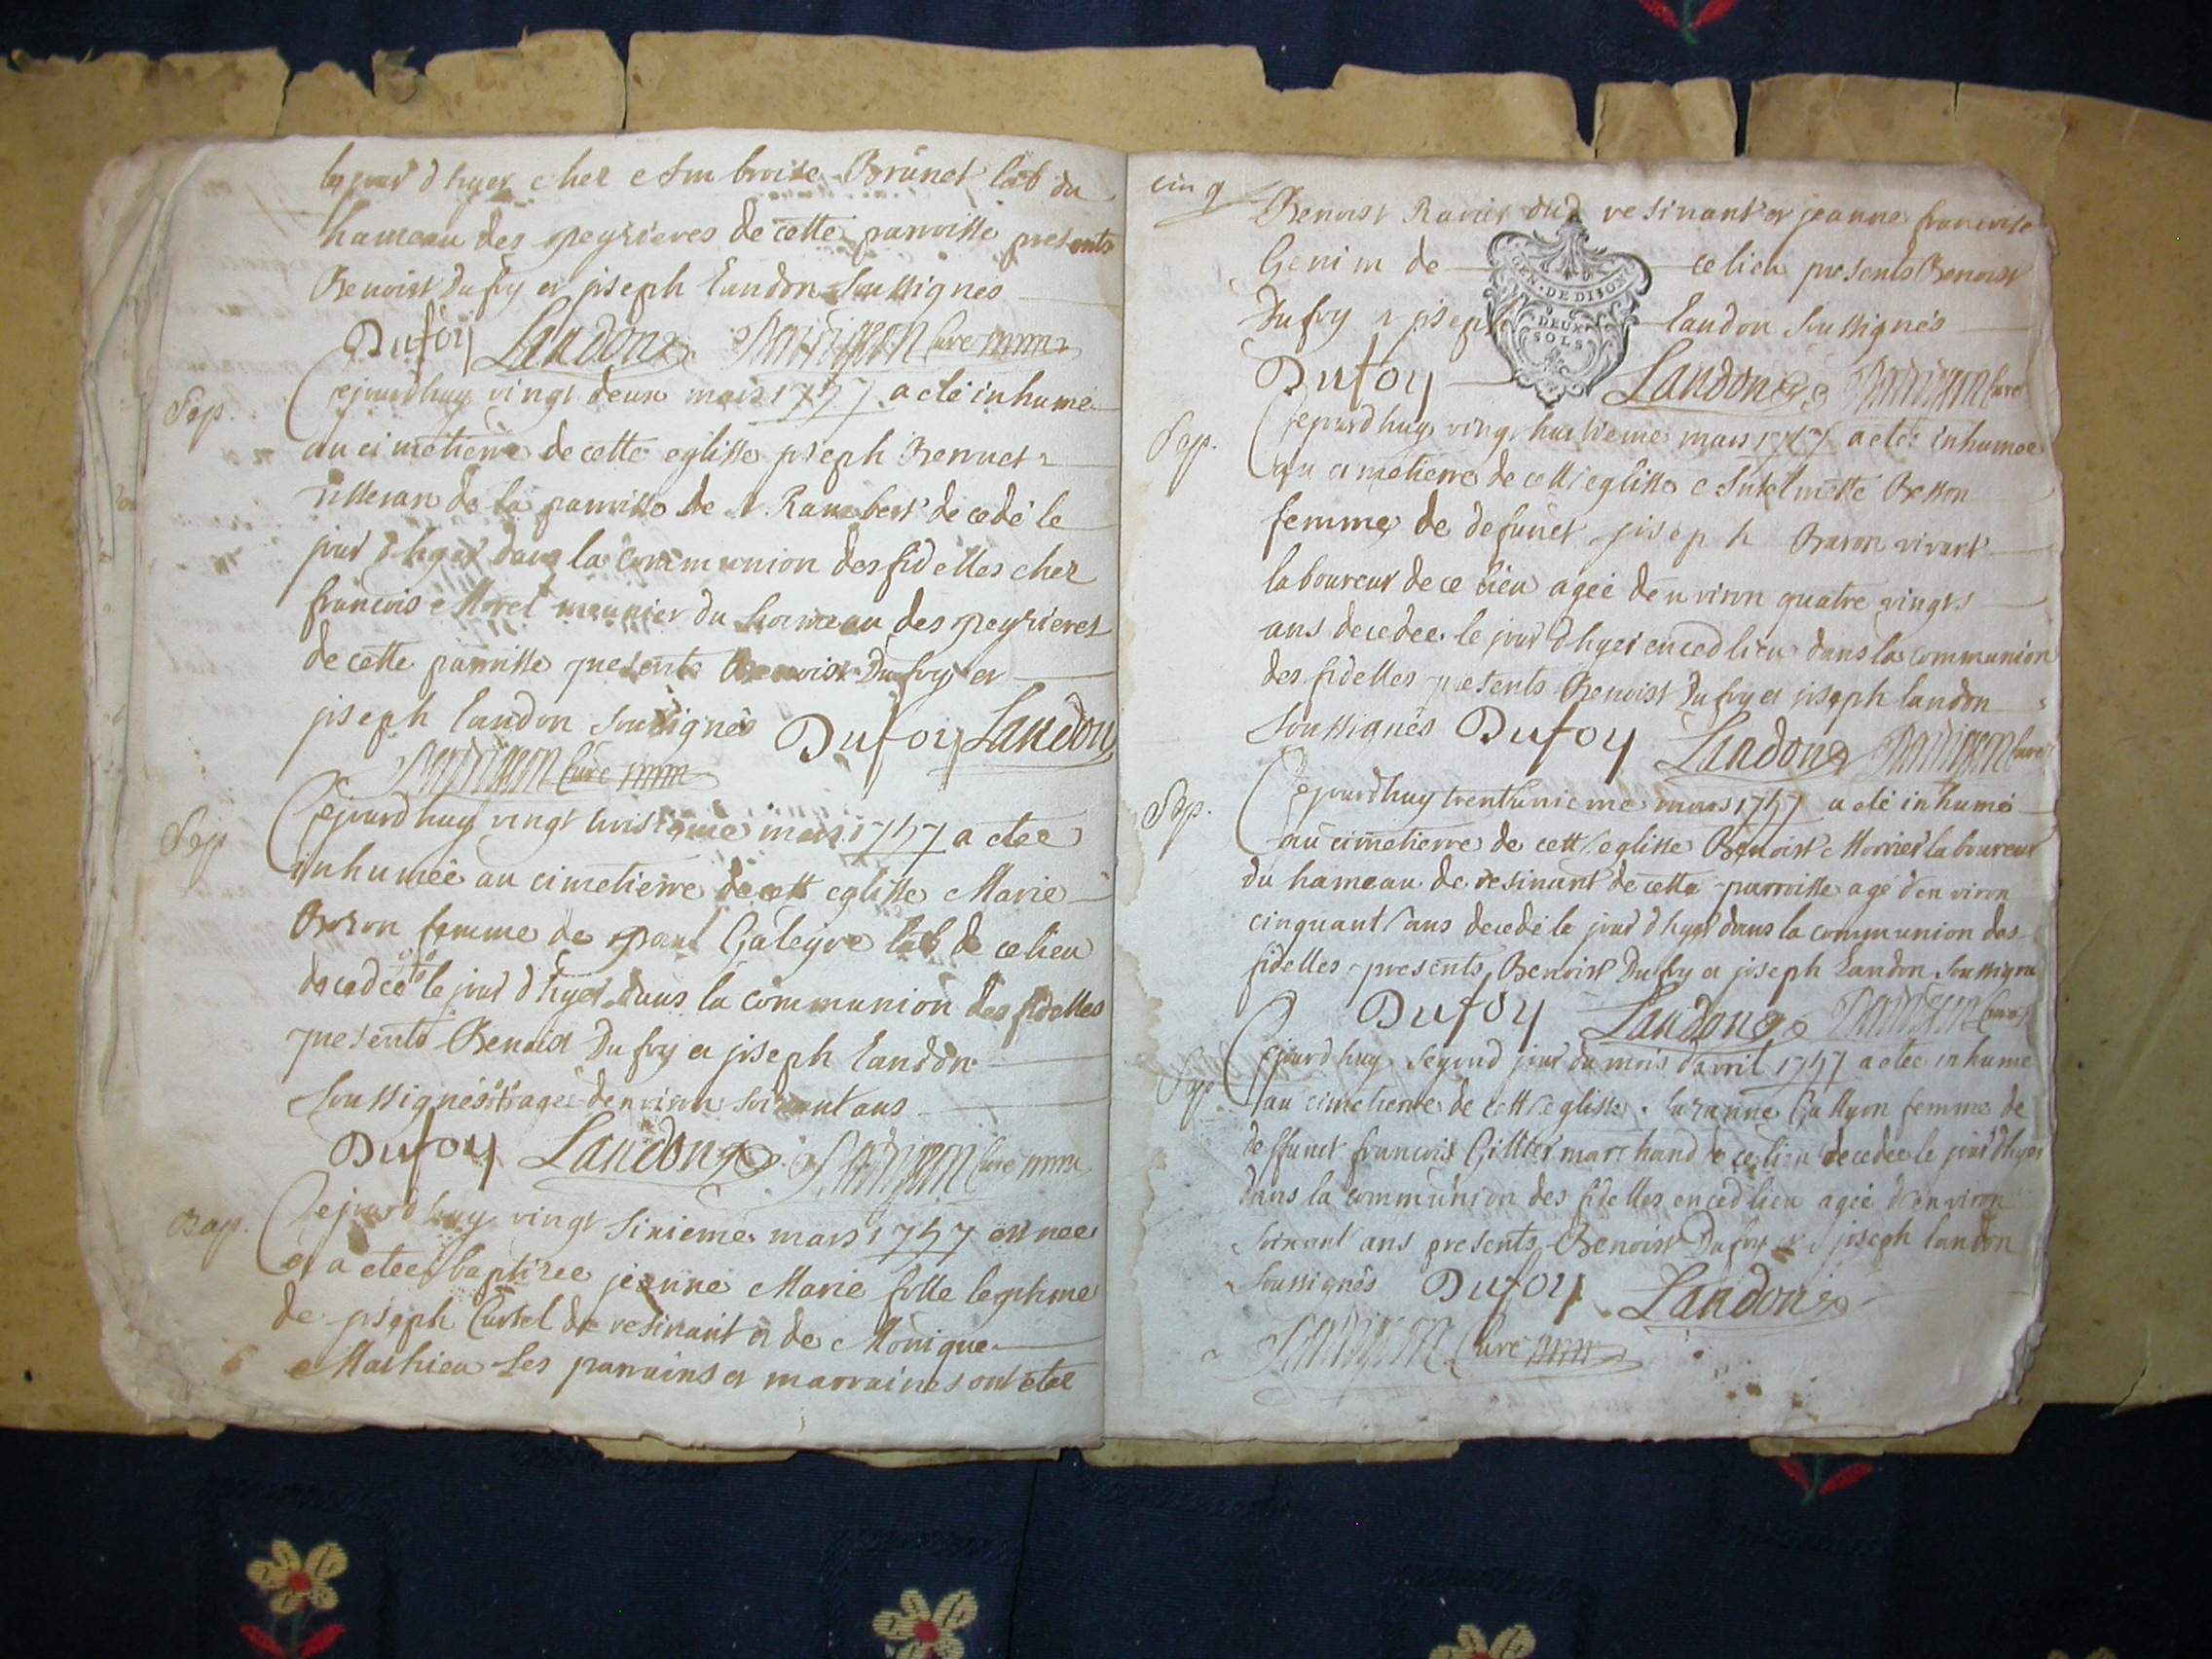 le jour d hyer chez Ambroise Brunet lab du
hameau des peyrieres de cette parroisse presents
Benoist Dufoy et joseph Landon soussignés
Dufoy Landon curé
Sep.
Cejourdhuy vingt deux mars 1757 a eté inhumé
au cimetierre de cette eglisse joseph
de la parroisse de St. Rambert decedé le
jour d hyer dans la communion des fidelles chez
francois Morel meunier du hameau des peyrieres
de cette parroisse presents Benoist Dufoy et
joseph landon soussignés Dufoy Landon
curé
Sep
Cejourdhuy vingt troisieme mars 1757 a etee
inhumée au cimetierre de cett eglisse Marie
femme de paul Galeyre lab de ce lieu
decedee le jour d hyer dans la communion des fidelles
presents Benoist Dufoy et joseph landon
soussignés agée denviron soixant ans
Dufoy Landon curé
Bap.
Cejourdhuy vingt sixieme mars 1757 est nee
et a etee baptizee jeanne Marie fille legitime
de joseph de resinant et de Monique
Mathieu les parrains et marraines ont eté
cinq
Benoist Ravier dud resinant et jeanne francoise
Genim de ce lieu presents Benoist
Dufoy et joseph landon soussignés
GEN. DE DIJON
DEUX
SOLS
Dufoy Landon curé
Sep.
Cejourdhuy vingt huitieme mars 1757 a etée inhumee
au cimetierre de cett eglisse Antelmette Besson
femme de defunct joseph Baron vivant
laboureur de ce lieu agée denviron quatre vingts
ans decedee le jour d hyer en ced lieu dans la communion
des fidelles presents Benoist Dufoy et joseph landon
soussignés Dufoy Landon curé
Sep.
Cejourdhuy trentunieme mars 1757 a eté inhumé
au cimetierre de cett eglisse Benoist Morrier laboureur
du hameau de resinant de cette parroisse agé denviron
cinquant ans decedé le jour d hyer dans la communion des
fidelles presents Benoist Dufoy et joseph Landon soussignes
Dufoy Landon curé
Sep
Cejourdhuy segond jour du mois davril 1757 a etee inhume
au cimetierre de cett eglisse suzanne femme de
deffunct francois marchand de ce lieu decedee le jour d hyer
dans la communion des fidelles en ced lieu agée denviron
soixant ans presents Benoist Dufoy et joseph landon
soussignés Dufoy Landon
curé